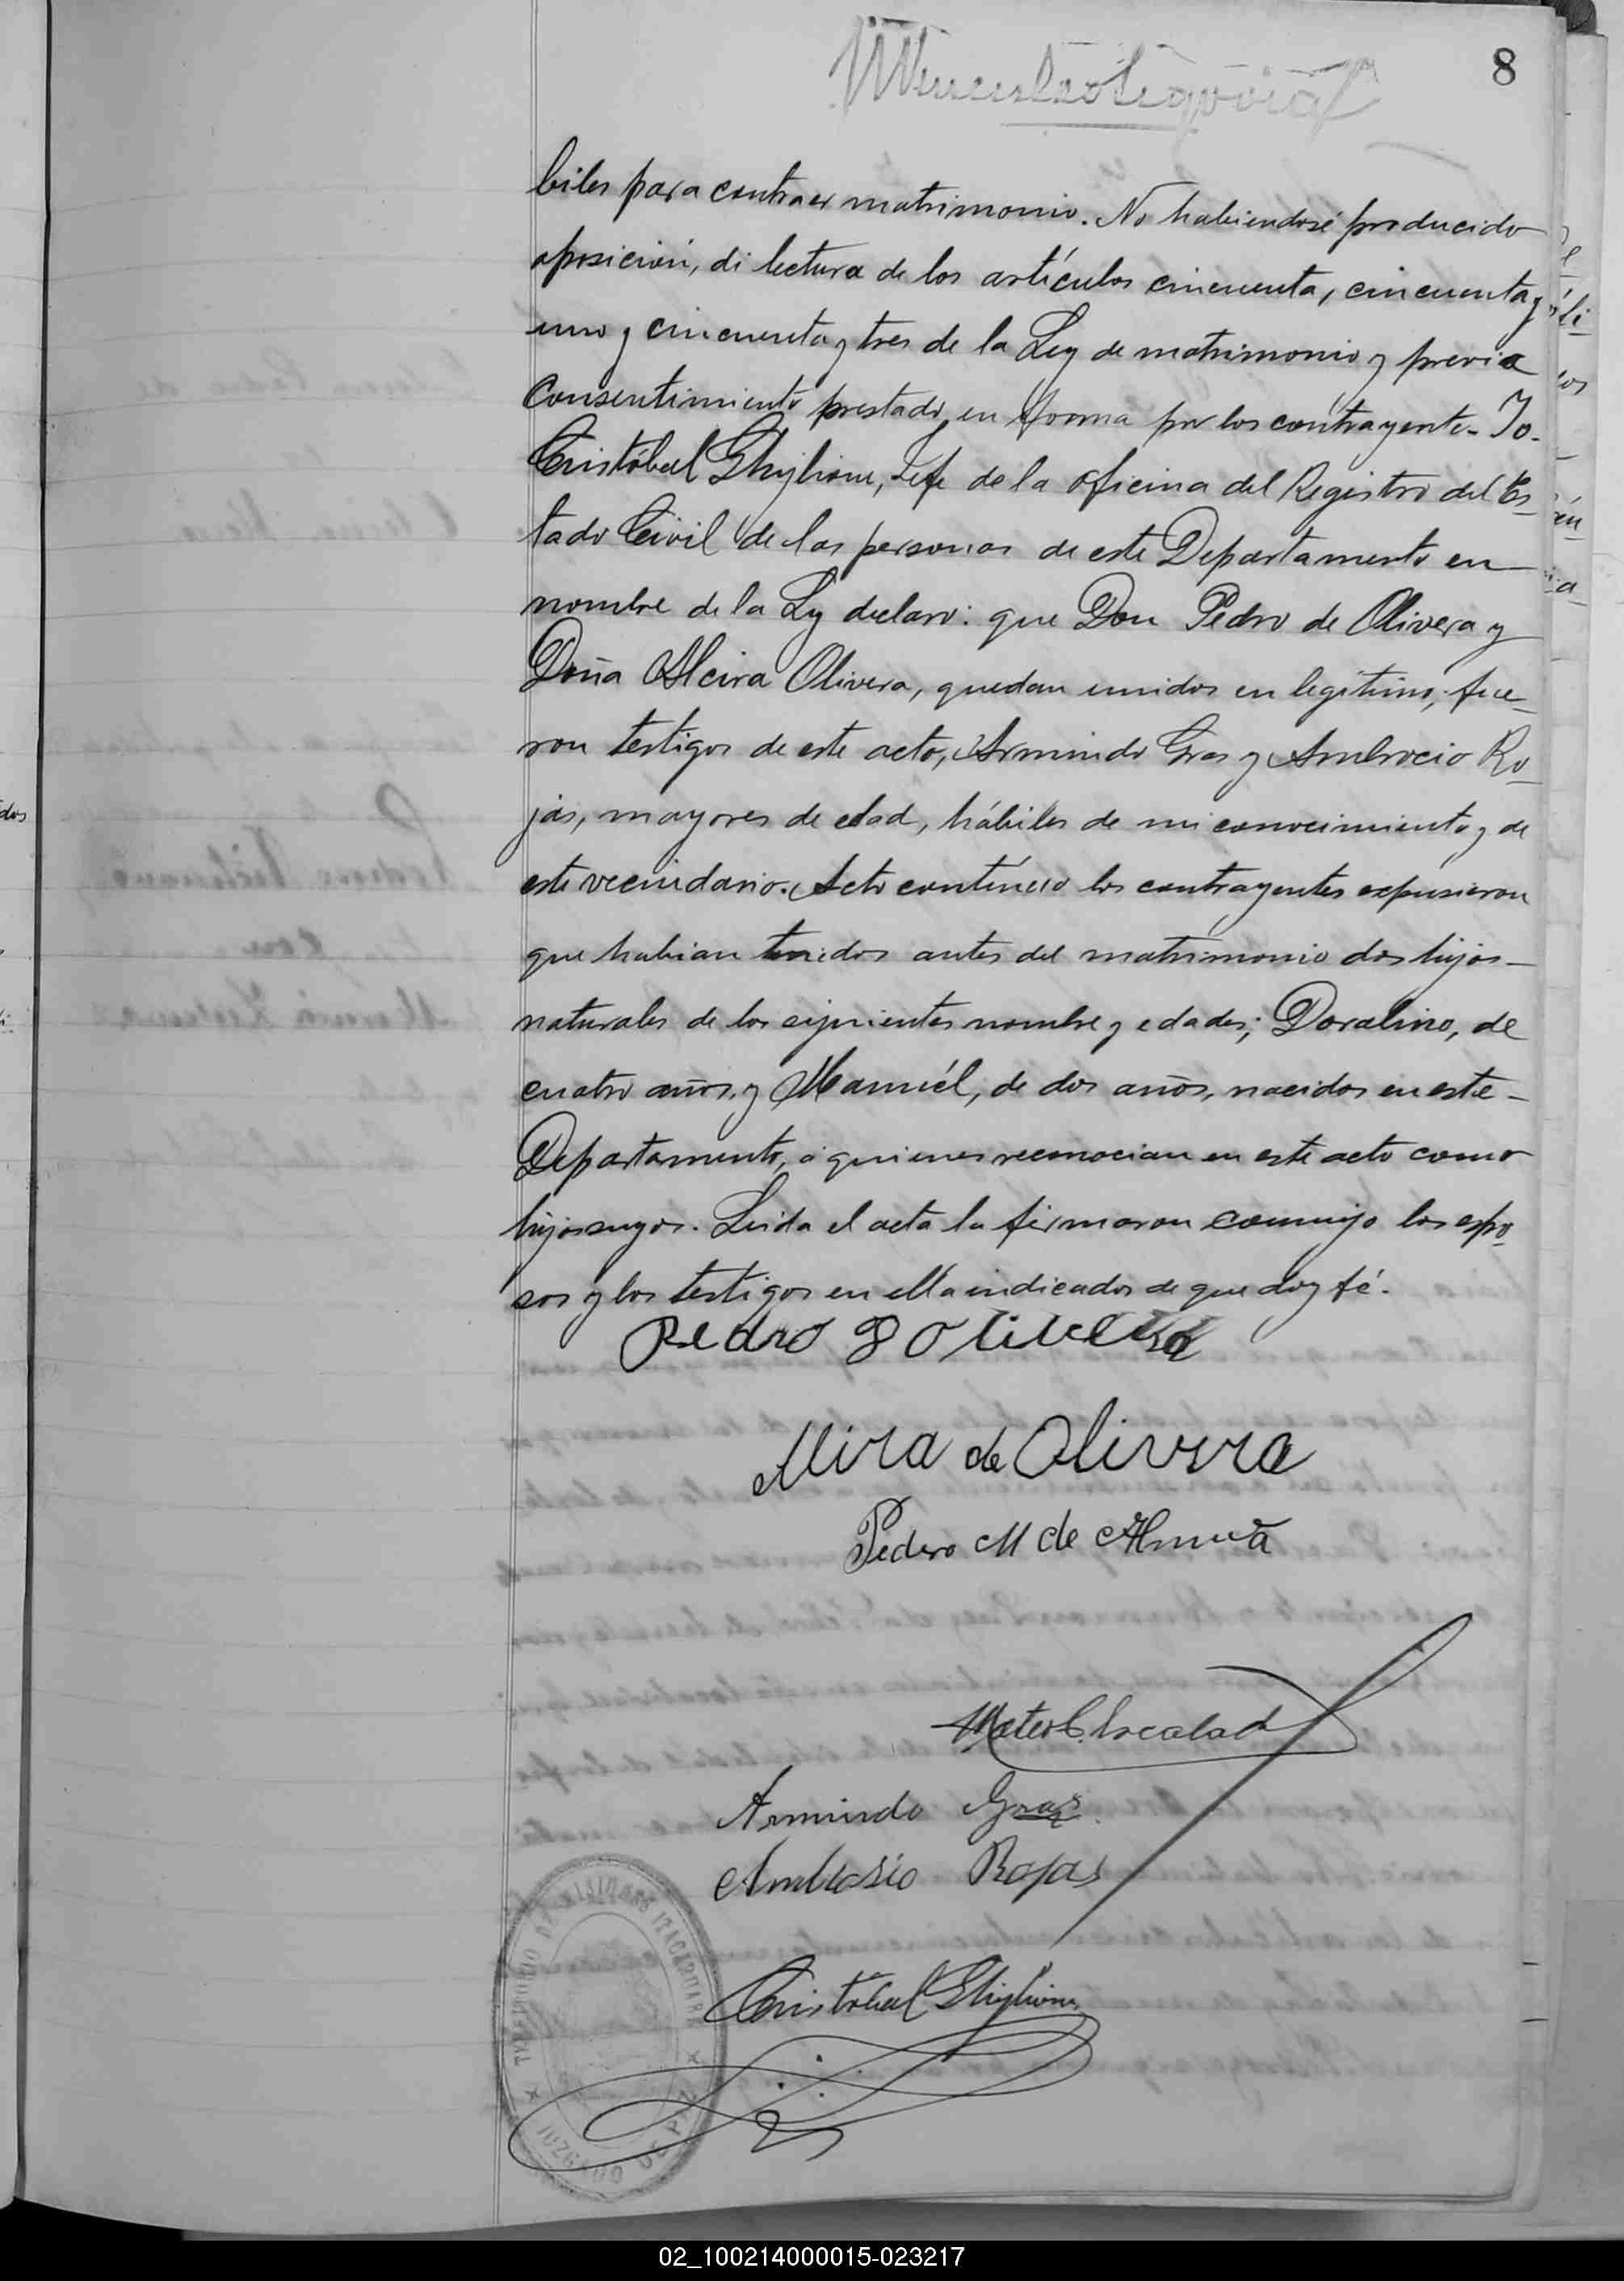 8
biles para contraer matrimonio. No habiendosé producido
oposición, di lectura de los artículos cincuenta, cincuenta y
uno y cincuenta y tres de la Ley de matrimonio y previa
Consentimiento prestado en forma por los contrayente - Yo -
Cristóbal Ghiglione, Jefe de la oficina del Registro del Es-
tado Civil de las personas de este Departamento en
nombre de la Ley declaro: que Don Pedro de Olivera y
Doña Alcira Olivera, quedan unidos en legítimo, fue-
ron testigos de este acto, Armindo Gras y Ambrocio Ro-
jas, mayores de edad, hábiles de mi conocimiento y de
este vecindario. Acto contínuo los contrayentes expusieron
que habian tenidos antes del matrimonio dos hijos -
naturales de los siguientes nombre y edades; Doralino, de
cuatro años, y Manuél, de dos años, nacidos en este -
Departamento, á quienes reconocian en este acto como
hijos suyos. Leida el acta la firmaron conmigo los espo-
sos y los testigos en ella indicados de que doy fé.
Pedro
Alcira de Olivera
Pedro M de
Armindo Gras
Ambrosio Rojas
Cristóbal Ghiglione
JUZGADO DE PAZ
02_100214000015-023217